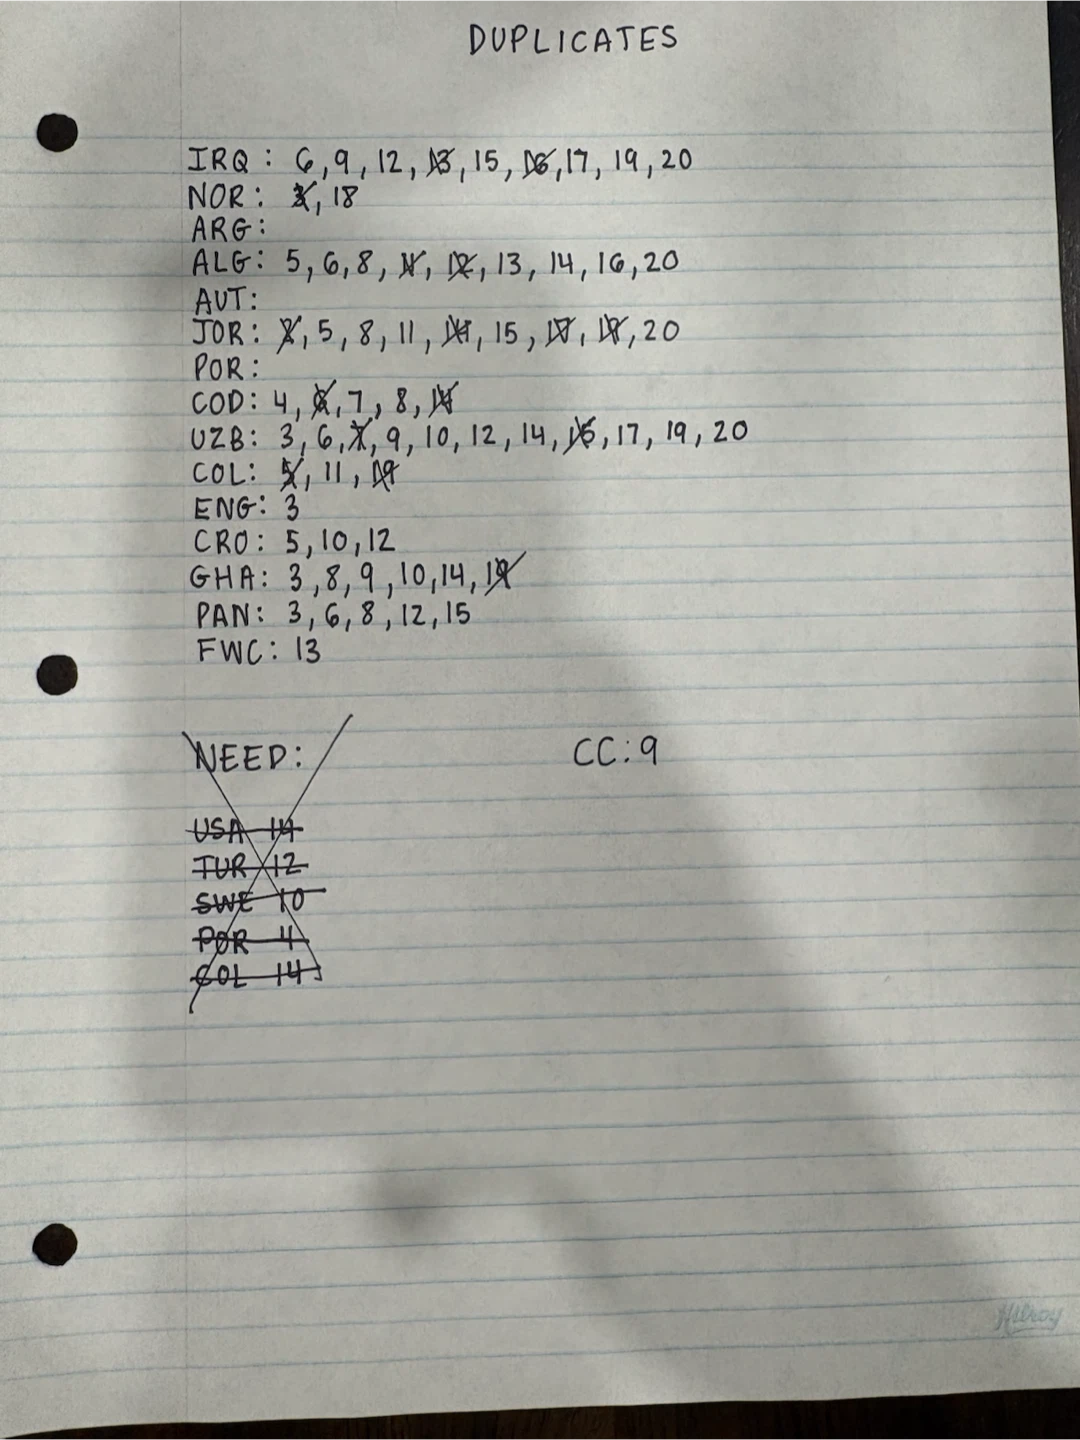 DUPLICATES
IRQ: 6, 9, 12, 13, 15, 16, 17, 19, 20
NOR: 3, 18
ARG:
ALG: 5, 6, 8, 11, 12, 13, 14, 16, 20
AUT:
JOR: 2, 5, 8, 11, 14, 15, 17, 19, 20
POR:
COD: 4, 6, 7, 8, 14
UZB: 3, 6, 7, 9, 10, 12, 14, 15, 17, 19, 20
COL: 5, 11, 19
ENG: 3
CRO: 5, 10, 12
GHA: 3, 8, 9, 10, 14, 19
PAN: 3, 6, 8, 12, 15
FWC: 13
NEED:
CC: 9
USA 14
TUR 12
SWE 10
POR 4
COL 14
Hilroy